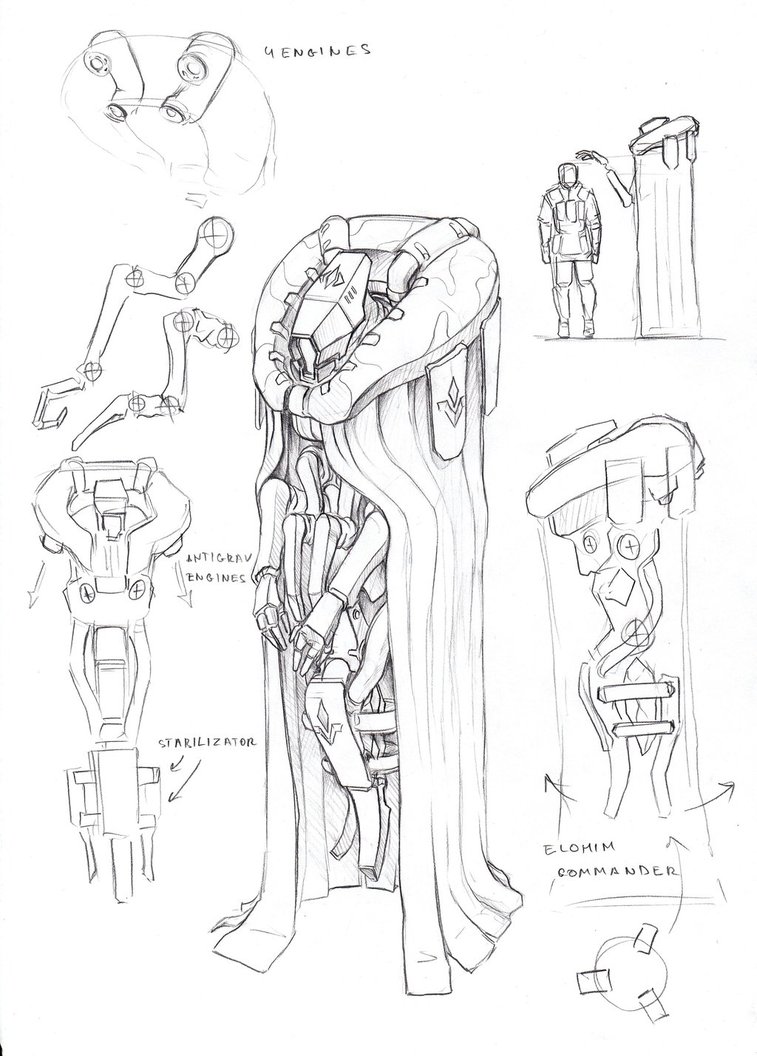 4 ENGINES
ANTIGRAV
ENGINES
STARILIZATOR
ELOHIM
COMMANDER